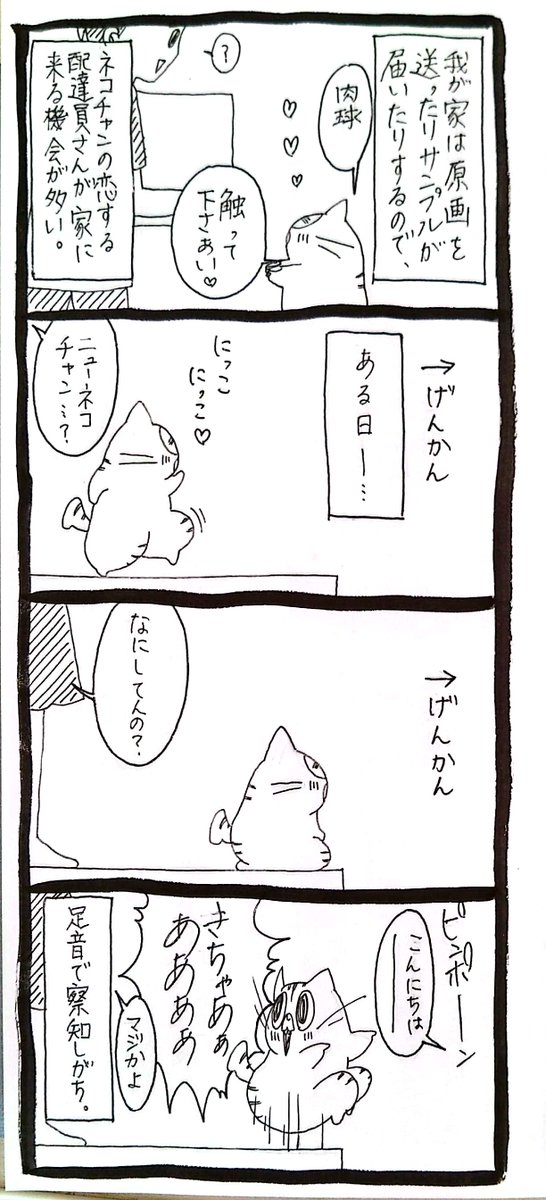 我が家は原画を
送ったりサンプルが
届いたりするので、
肉球
♡♡♡
触って
下さぁい♡
?
ネコチャンの恋する
配達員さんが家に
来る機会が多い。
→げんかん
ある日ー…
にっこ
にっこ♡
ニューネコ
チャン…?
→げんかん
なにしてんの?
ピンポーン
こんにちはー
きちゃあぁ
ああああ
マジかよ
足音で察知しがち。